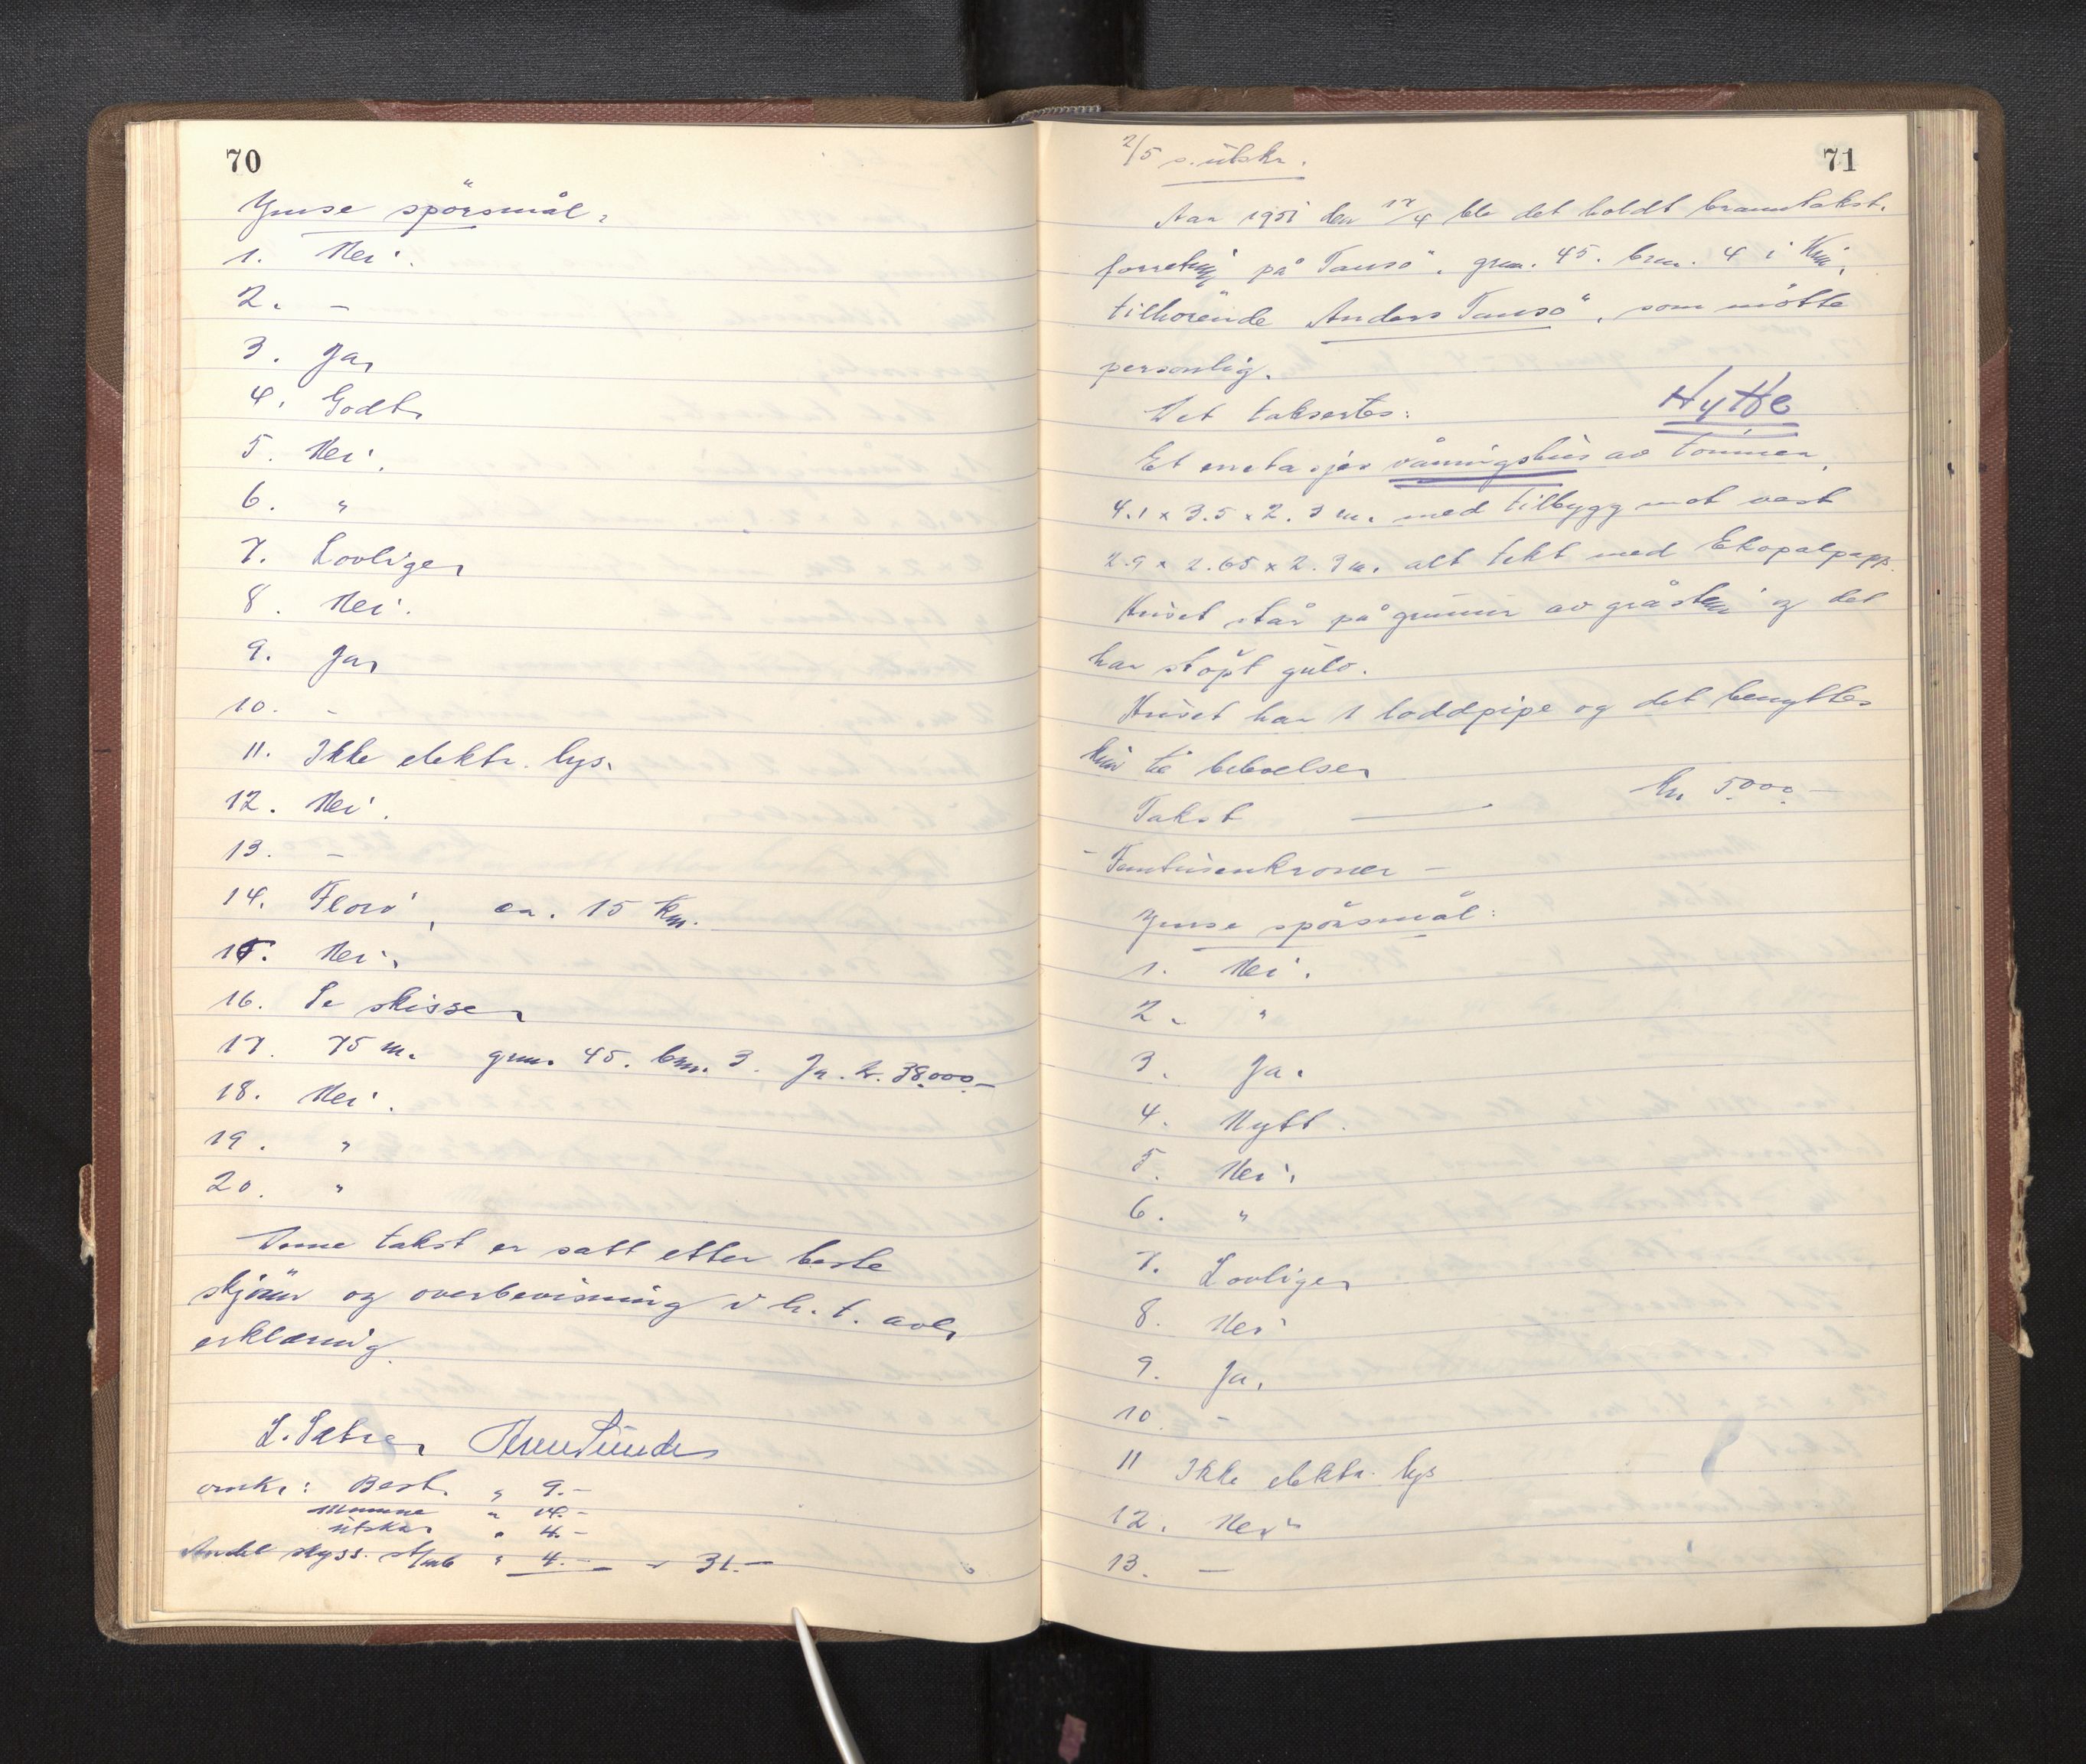 70
Ymse spörsmål.
1. Nei.
2. -
3. Ja,
4. Godt,
5. Nei.
6. "
7. Lovlige,
8. Nei.
9. Ja,
10. -
11. Ikke elektr. lys.
12. Nei.
13. -
14. Florö, ca. 15 km.
15. Nei.
16. Se skisse,
17. 75 m. gnr. 45. bnr. 3. Ja. kr. 38.000.-
18. Nei.
19. "
20. "
Denne takst er satt etter beste
skjönn og overbevisning i h. t. avl,
erklæring.
omk: Best. " 9.-
" 14.-
utskr " 4.-
Andel skyss. " 4.- " 31.-
2/5 s. utskr.
71
Aar 1951 den 17/4 ble det holdt branntakst.
forretning på Tansö. gnr. 45. bnr. 4 i Kinn,
tilhörende Anders Tansö, som mötte
personlig.
Det takseres: Hytte
Et enetasjes våningshus av tömmer,
4.1 x 3.5 x 2.3 m. med tilbygg mot vest
2.9 x 2.65 x 2.3 m. alt tekt med Ekopalpapp.
Huset står på grunnur av gråstein og det
har stöpt gulv.
Huset har 1 loddpipe og det benyttes
kun til beboelse,
Takst — kr. 5000.-
- Femtusenkroner -
Ymse spörsmål:
1. Nei.
2. "
3. Ja.
4. Nytt.
5. Nei.
6. "
7. Lovlige,
8. Nei
9. Ja.
10. -
11 Ikke elektr. lys
12. Nei
13. -